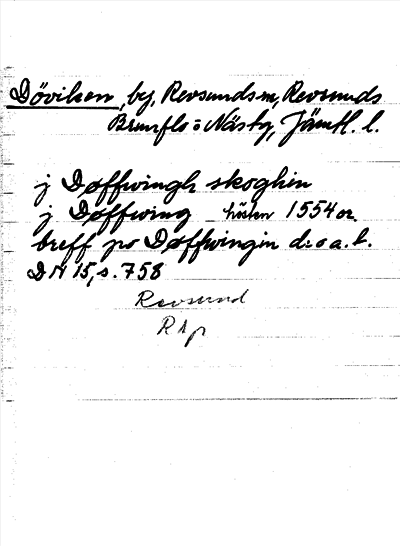 Döviken, by, Revsunds sn, Revsunds
Brunflo o Näsby, Jämtl. l.
j Døffwingh skoghin
j Døffwing hösten 1554 or.
breff po Døffwingin d:o a. b.
DN 15, s. 758
Revsund
RAp